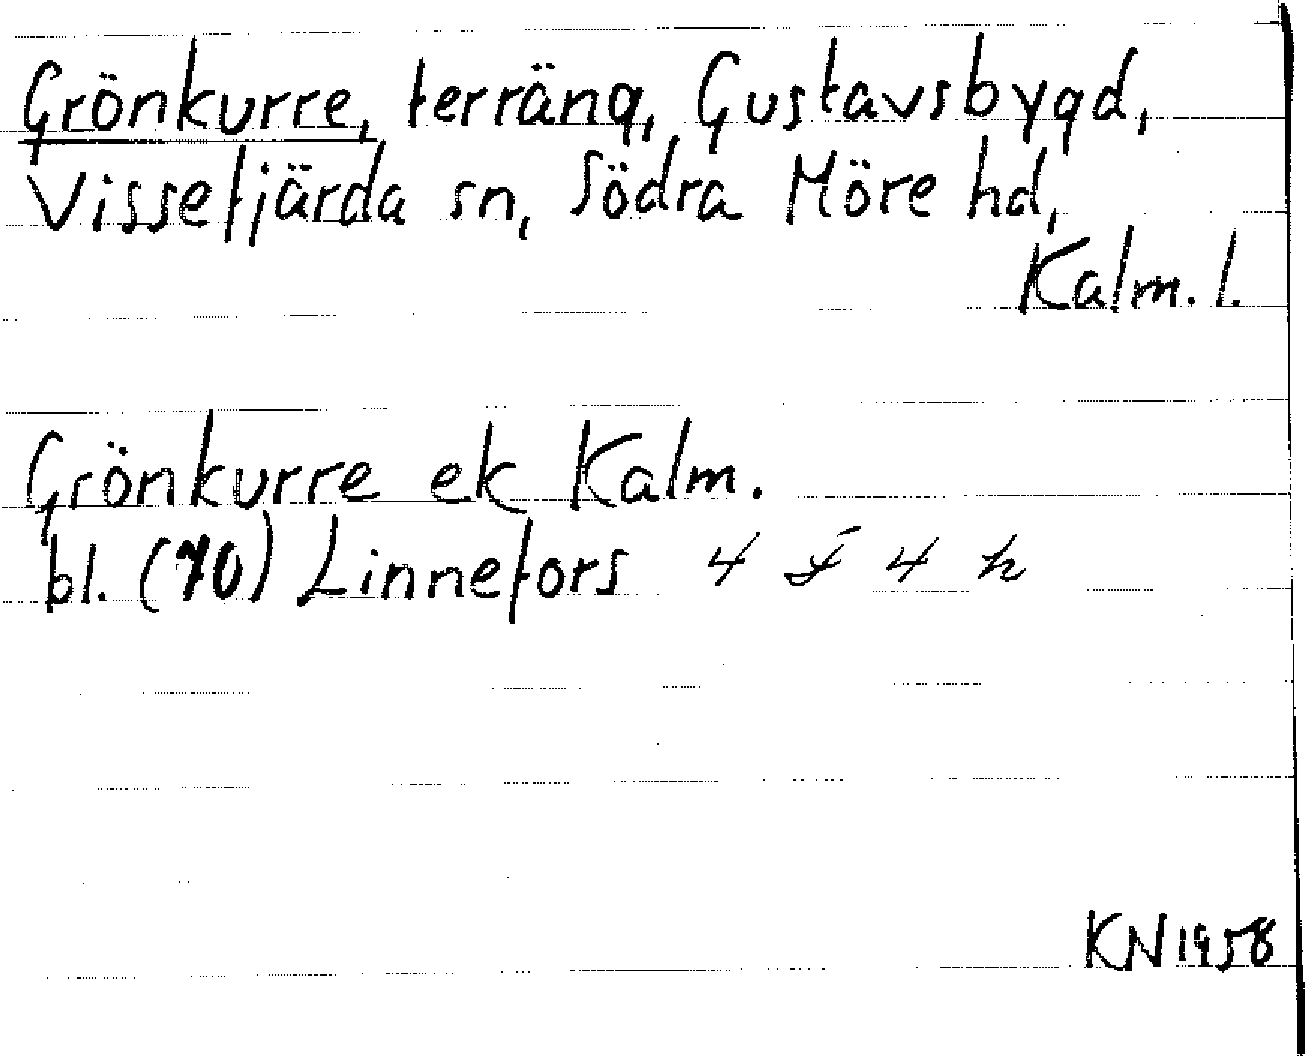 Grönkurre, terräng, Gustavsbygd,
Vissefjärda sn, Södra Möre hd,
Kalm. l.
Grönkurre ek Kalm.
bl. (70) Linnefors 4 F 4 h
KN 1958